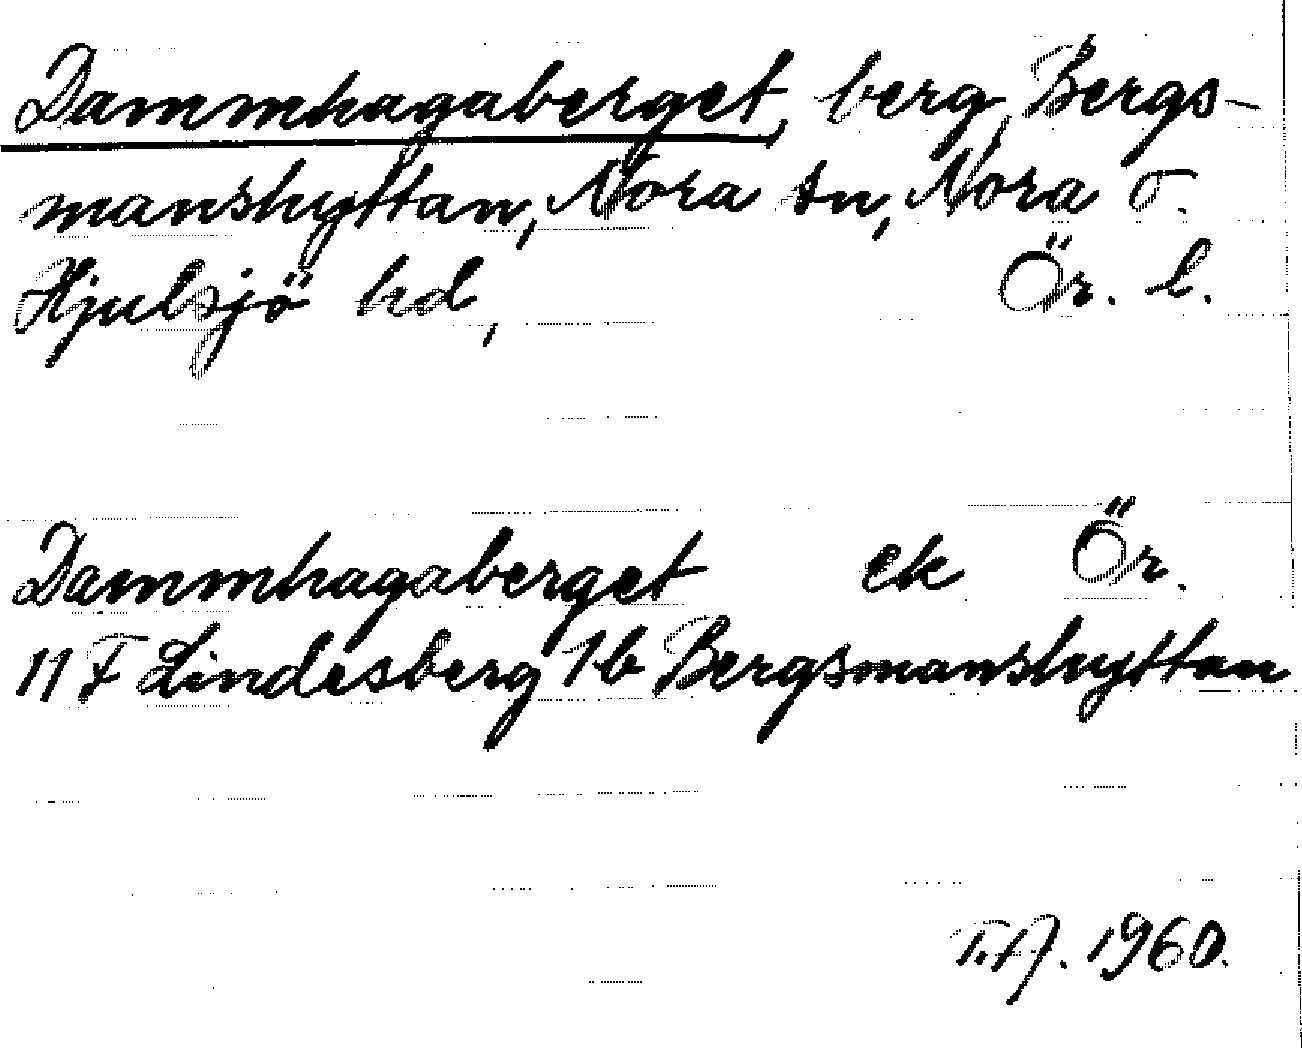 Dammhagaberget, berg, Bergs-
manshyttan, Nora sn, Nora o.
Hjulsjö hd, Ör. l.
Dammhagaberget ek Ör.
11 F Lindesberg 1b Bergsmanshyttan
T.A. 1960.